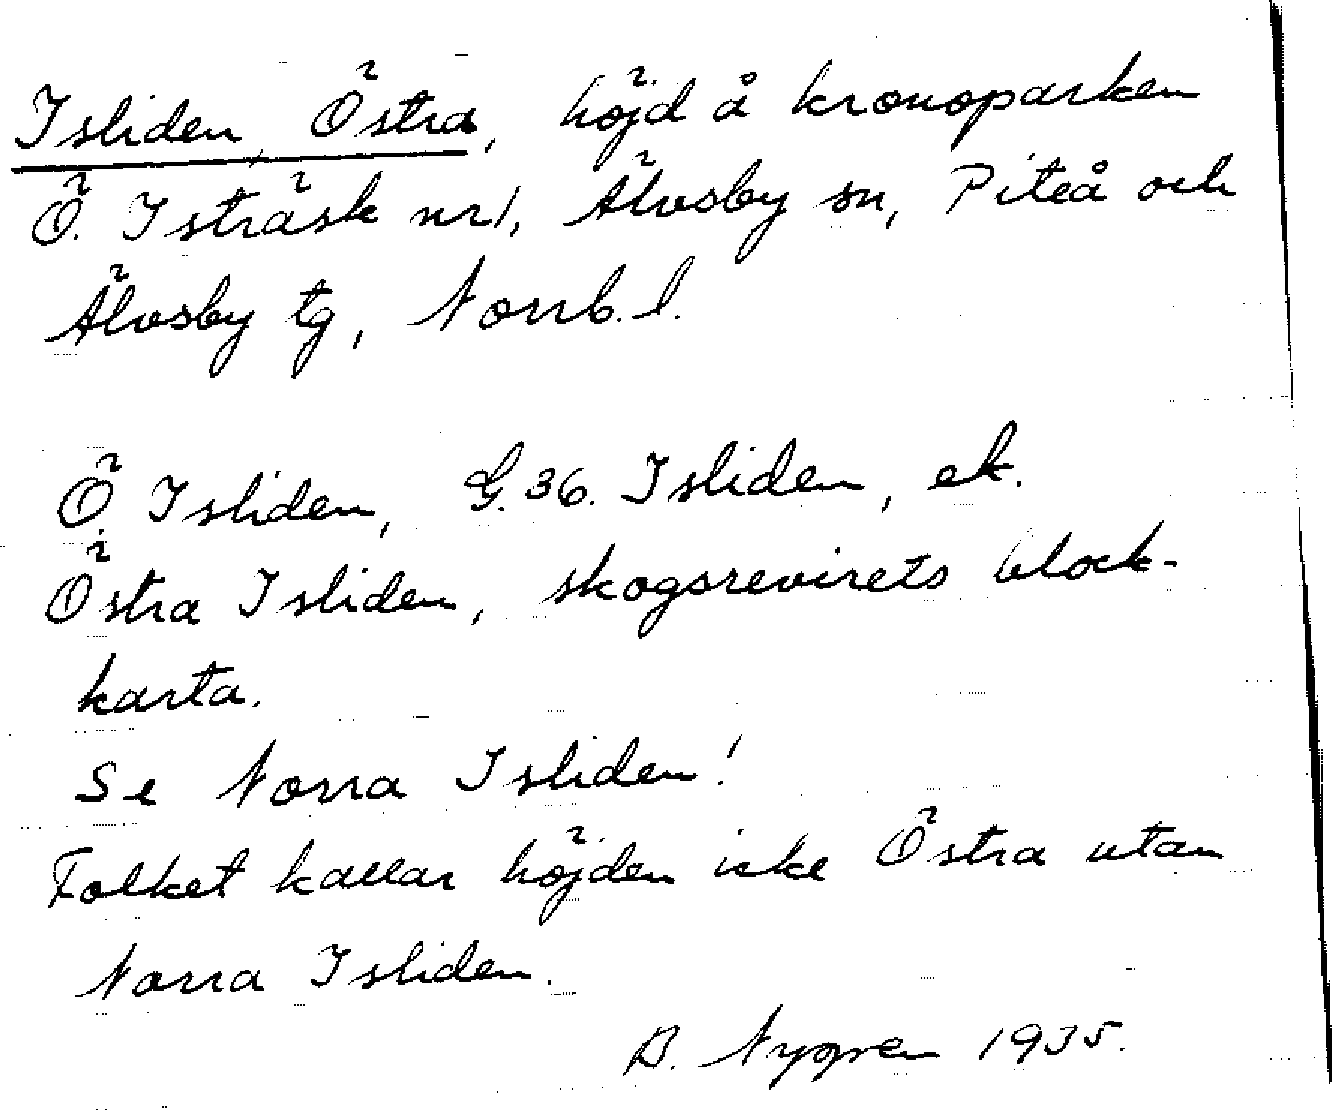 Isliden, Östra, höjd å kronoparken
Ö. Isträsk nr 1, Älvsby sn, Piteå och
Älvsby tg, Norrb. l.
Ö. Isliden, G. 36. Isliden, ek.
Östra Isliden, skogsrevirets block-
karta.
Se Norra Isliden!
Folket kallar höjden icke Östra utan
Norra Isliden.
B. Nygren 1935.